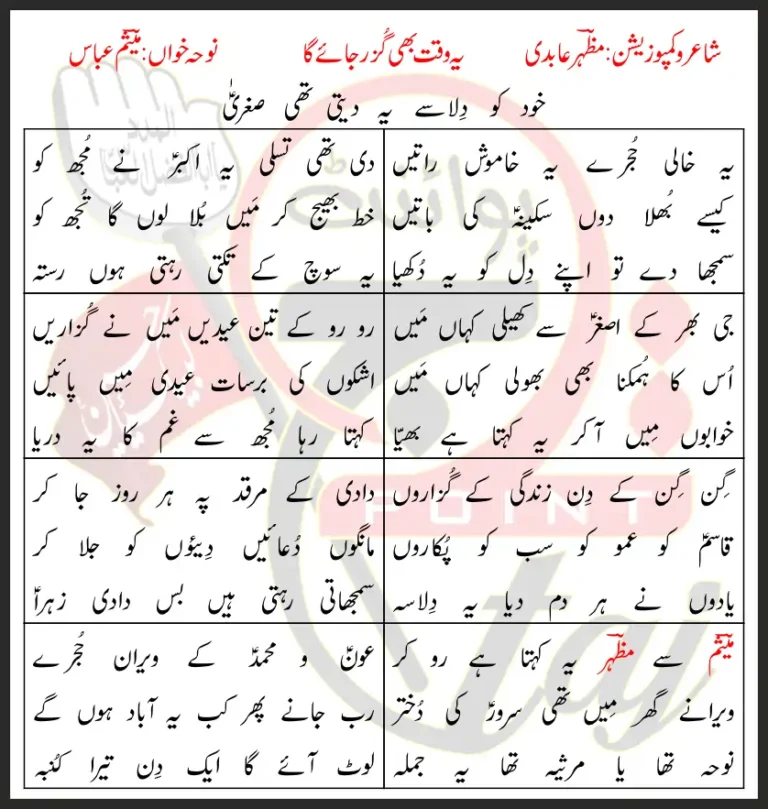 شاعر و کمپوزیشن: مظہرؔ عابدی یہ وقت بھی گُزر جائے گا نوحہ خواں: میثمؔ عباس
خود کو دِلاسے یہ دیتی تھی صغریٰؑ
یہ خالی حُجرے یہ خاموش راتیں
کیسے بُھلا دوں سکینہؑ کی باتیں
سمجھا دے تو اپنے دِل کو یہ دُکھیا
دی تھی تسلی یہ اکبرؑ نے مُجھ کو
خط بھیج کر مَیں بُلا لوں گا تُجھ کو
یہ سوچ کے تکتی رہتی ہوں رستہ
جی بھر کے اصغرؑ سے کھیلی کہاں مَیں
اُس کا ہُمکنا بھی بھولی کہاں مَیں
خوابوں مِیں آ کر یہ کہتا ہے بھیّا
رو رو کے تین عیدیں مَیں نے گُزاریں
اشکوں کی برسات عیدی مِیں پائیں
کہتا رہا مُجھ سے غم کا یہ دریا
گِن گِن کے دِن زندگی کے گُزاروں
قاسمؑ کو عمو کو سب کو پُکاروں
یادوں نے ہر دم دیا یہ دِلاسہ
دادی کے مرقد پہ ہر روز جا کر
مانگوں دُعائیں دِیئوں کو جلا کر
سمجھاتی رہتی ہیں بس دادی زہراؑ
میثمؔ سے مظہرؔ یہ کہتا ہے رو کر
ویرانے گھر مِیں تھی سرورؑ کی دُختر
نوحہ تھا یا مرثیہ تھا یہ جملہ
عونؑ و محمدؑ کے ویران حُجرے
رب جانے پھر کب یہ آباد ہوں گے
لوٹ آئے گا ایک دِن تیرا کُنبہ
پوائنٹ
POINT
taj